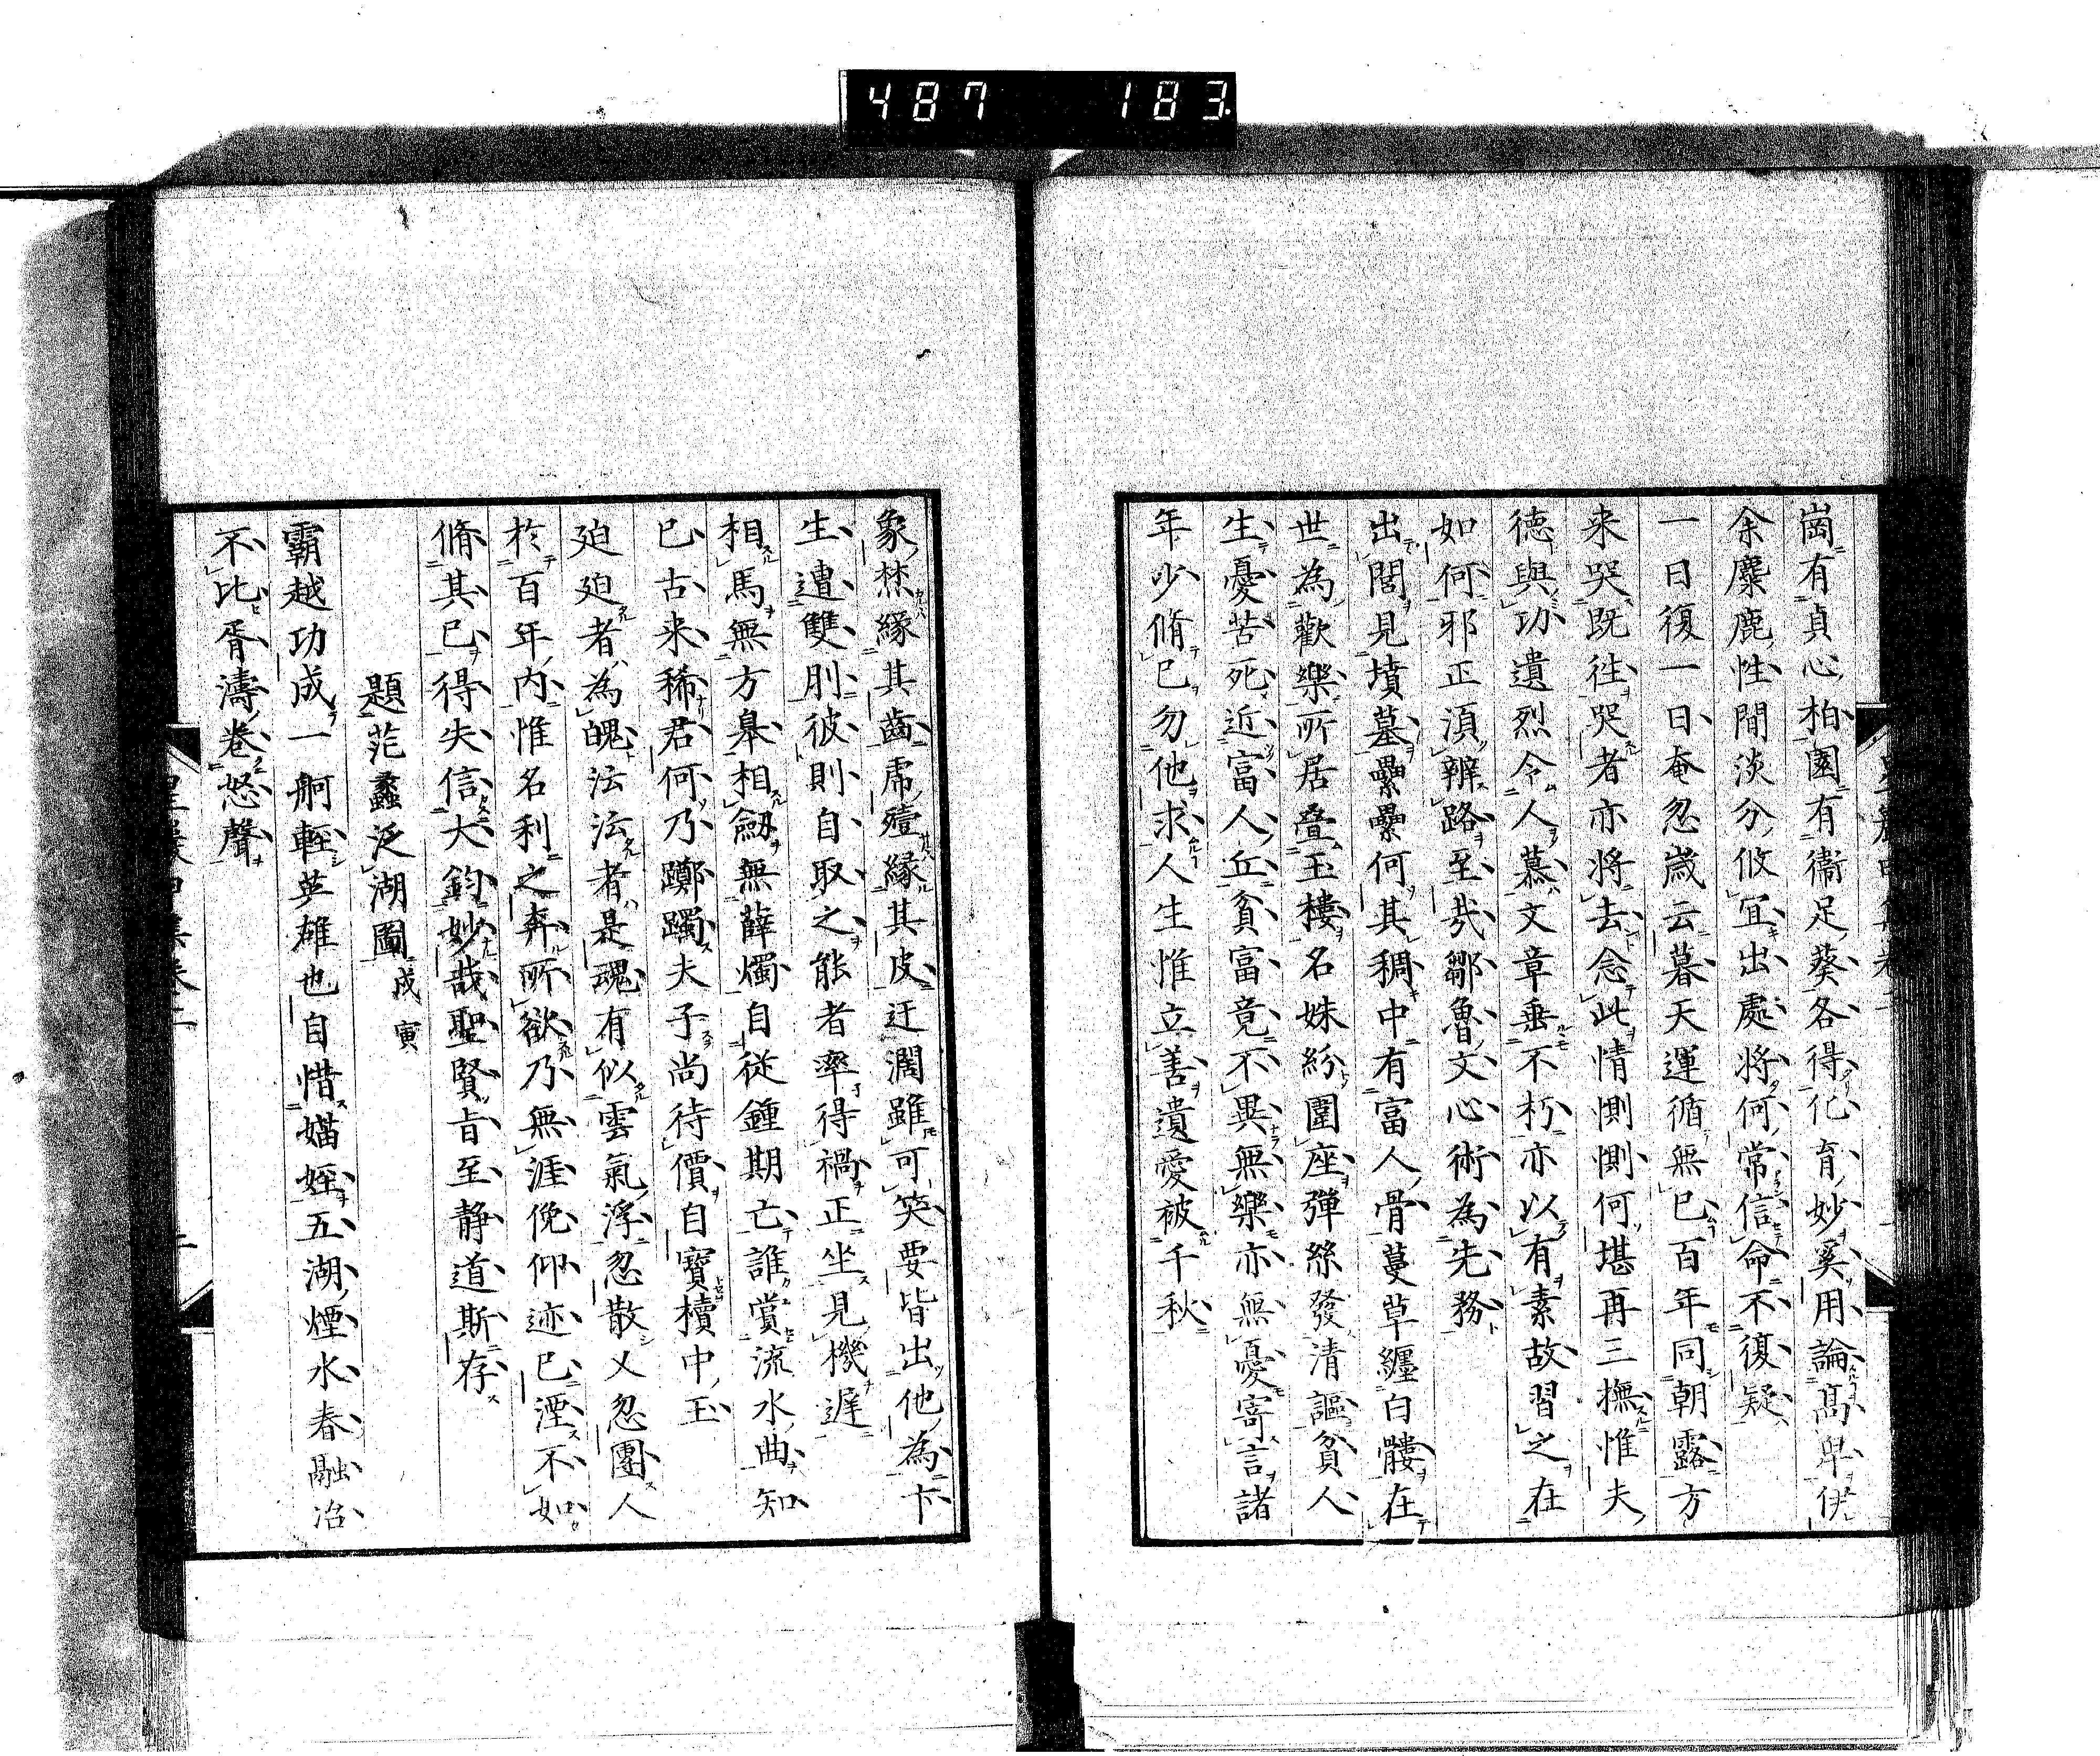 487 183
崗有貞心柏園有衞足葵各得化育妙奚用論高卑伊
余麋鹿性閒淡分攸宜出處將何常信命不復疑
一日復一日奄忽歲云暮天運循無已百年同朝露方
来哭既往哭者亦將去念此情惻惻何堪再三撫惟夫
德與功遺烈令人慕文章垂不朽亦以有素故習之在
如何邪正須辨路至哉鄒魯文心術為先務
出閭見墳墓纍纍何其稠中有富人骨蔓草纏白髏在
世為歡樂所居疊玉樓名姝紛圍座彈絲發清謳貧人
生憂苦死近富人丘貧富竟不異無樂亦無憂寄言諸
年少脩已勿他求人生惟立善遺愛被千秋
象焚緣其齒虎殪緣其皮迂濶雖可笑要皆出他為卞
生遭雙刖彼則自取之能者率得禍正坐見機遲
相馬無方皋相劔無薛燭自從鍾期亡誰賞流水曲知
已古来稀君何乃躑躅夫子尚待價自寶櫝中玉
廹廹者為魄法法者是魂有似雲氣浮忽散又忽團人
於百年内惟名利之奔所欲乃無涯俛仰迹已湮不如
脩其已得失信大鈞妙哉聖賢旨至靜道斯存
題范蠡泛湖圖戊寅
霸越功成一舸輕英雄也自惜媌娙五湖煙水春融冶
不比胥濤卷怒聲